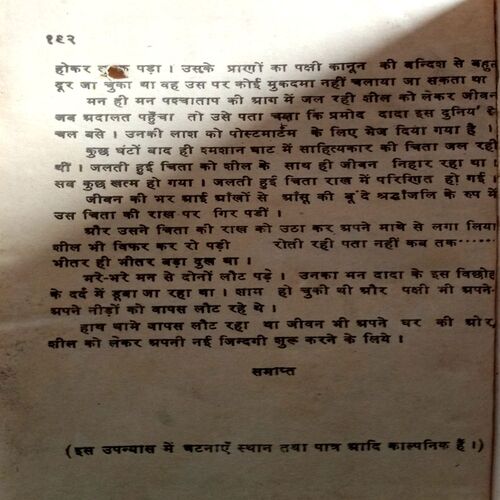 १९२
होकर पड़ा । उसके प्राणों का पक्षी कानून की बन्दिश से बहुत
दूर जा चुका था वह उस पर कोई मुकदमा नहीं चलाया जा सकता था
मन ही मन पश्चाताप की आग में जल रही शील को लेकर जीवन
जब अदालत पहुँचा तो उसे पता चला कि प्रमोद दादा इस दुनियाँ से
चल बसे । उनकी लाश को पोस्टमार्टम के लिए भेज दिया गया है ।
कुछ घंटों बाद ही श्मशान घाट में साहित्यकार की चिता जल रही
थीं । जलती हुई चिता को शील के साथ ही जीवन निहार रहा था ।
सब कुछ खत्म हो गया । जलती हुई चिता राख में परिणित हो गई ।
जीवन की भर आई आँखों से आँसू की बूंदे श्रद्धांजलि के रुप में
उस चिता की राख पर गिर पडीं ।
और उसने चिता की राख को उठा कर अपने माथे से लगा लिया
शील भी बिफर कर रो पड़ी रोती रही पता नहीं कब तक······
भीतर ही भीतर बड़ा दुख था ।
मरे-भरे मन से दोनों लौट पड़े । उनका मन दादा के इस विछोह
के दर्द में डूबा जा रहा था । शाम हो चुकी थी और पक्षी भी अपने-
अपने नीड़ों को वापस लौट रहे थे ।
हाथ थामे वापस लौट रहा था जीवन भी अपने घर की ओर,
शील को लेकर अपनी नई जिन्दगी शुरू करने के लिये ।
समाप्त
(इस उपन्यास में घटनाएँ स्थान तथा पात्र आदि काल्पनिक हैं ।)